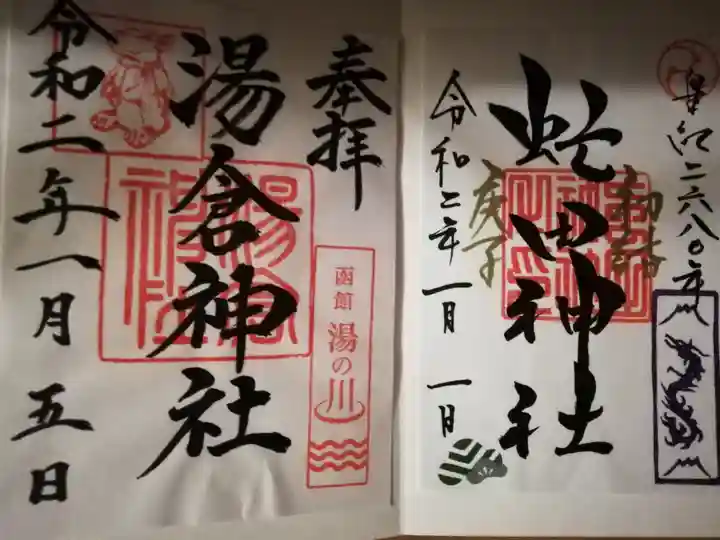 皇紀二六八〇年
初詣
虻田神社
庚子
令和二年一月一日
奉拝
函館
湯の川
湯倉神社
令和二年一月五日